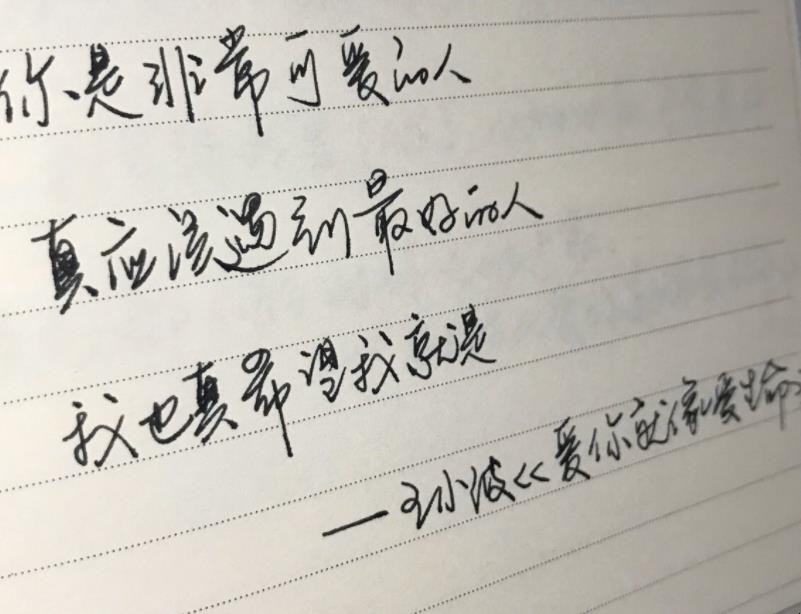 你是非常可爱的人
真应该遇到最好的人
我也真希望我就是
——王小波<<爱你就像爱生命